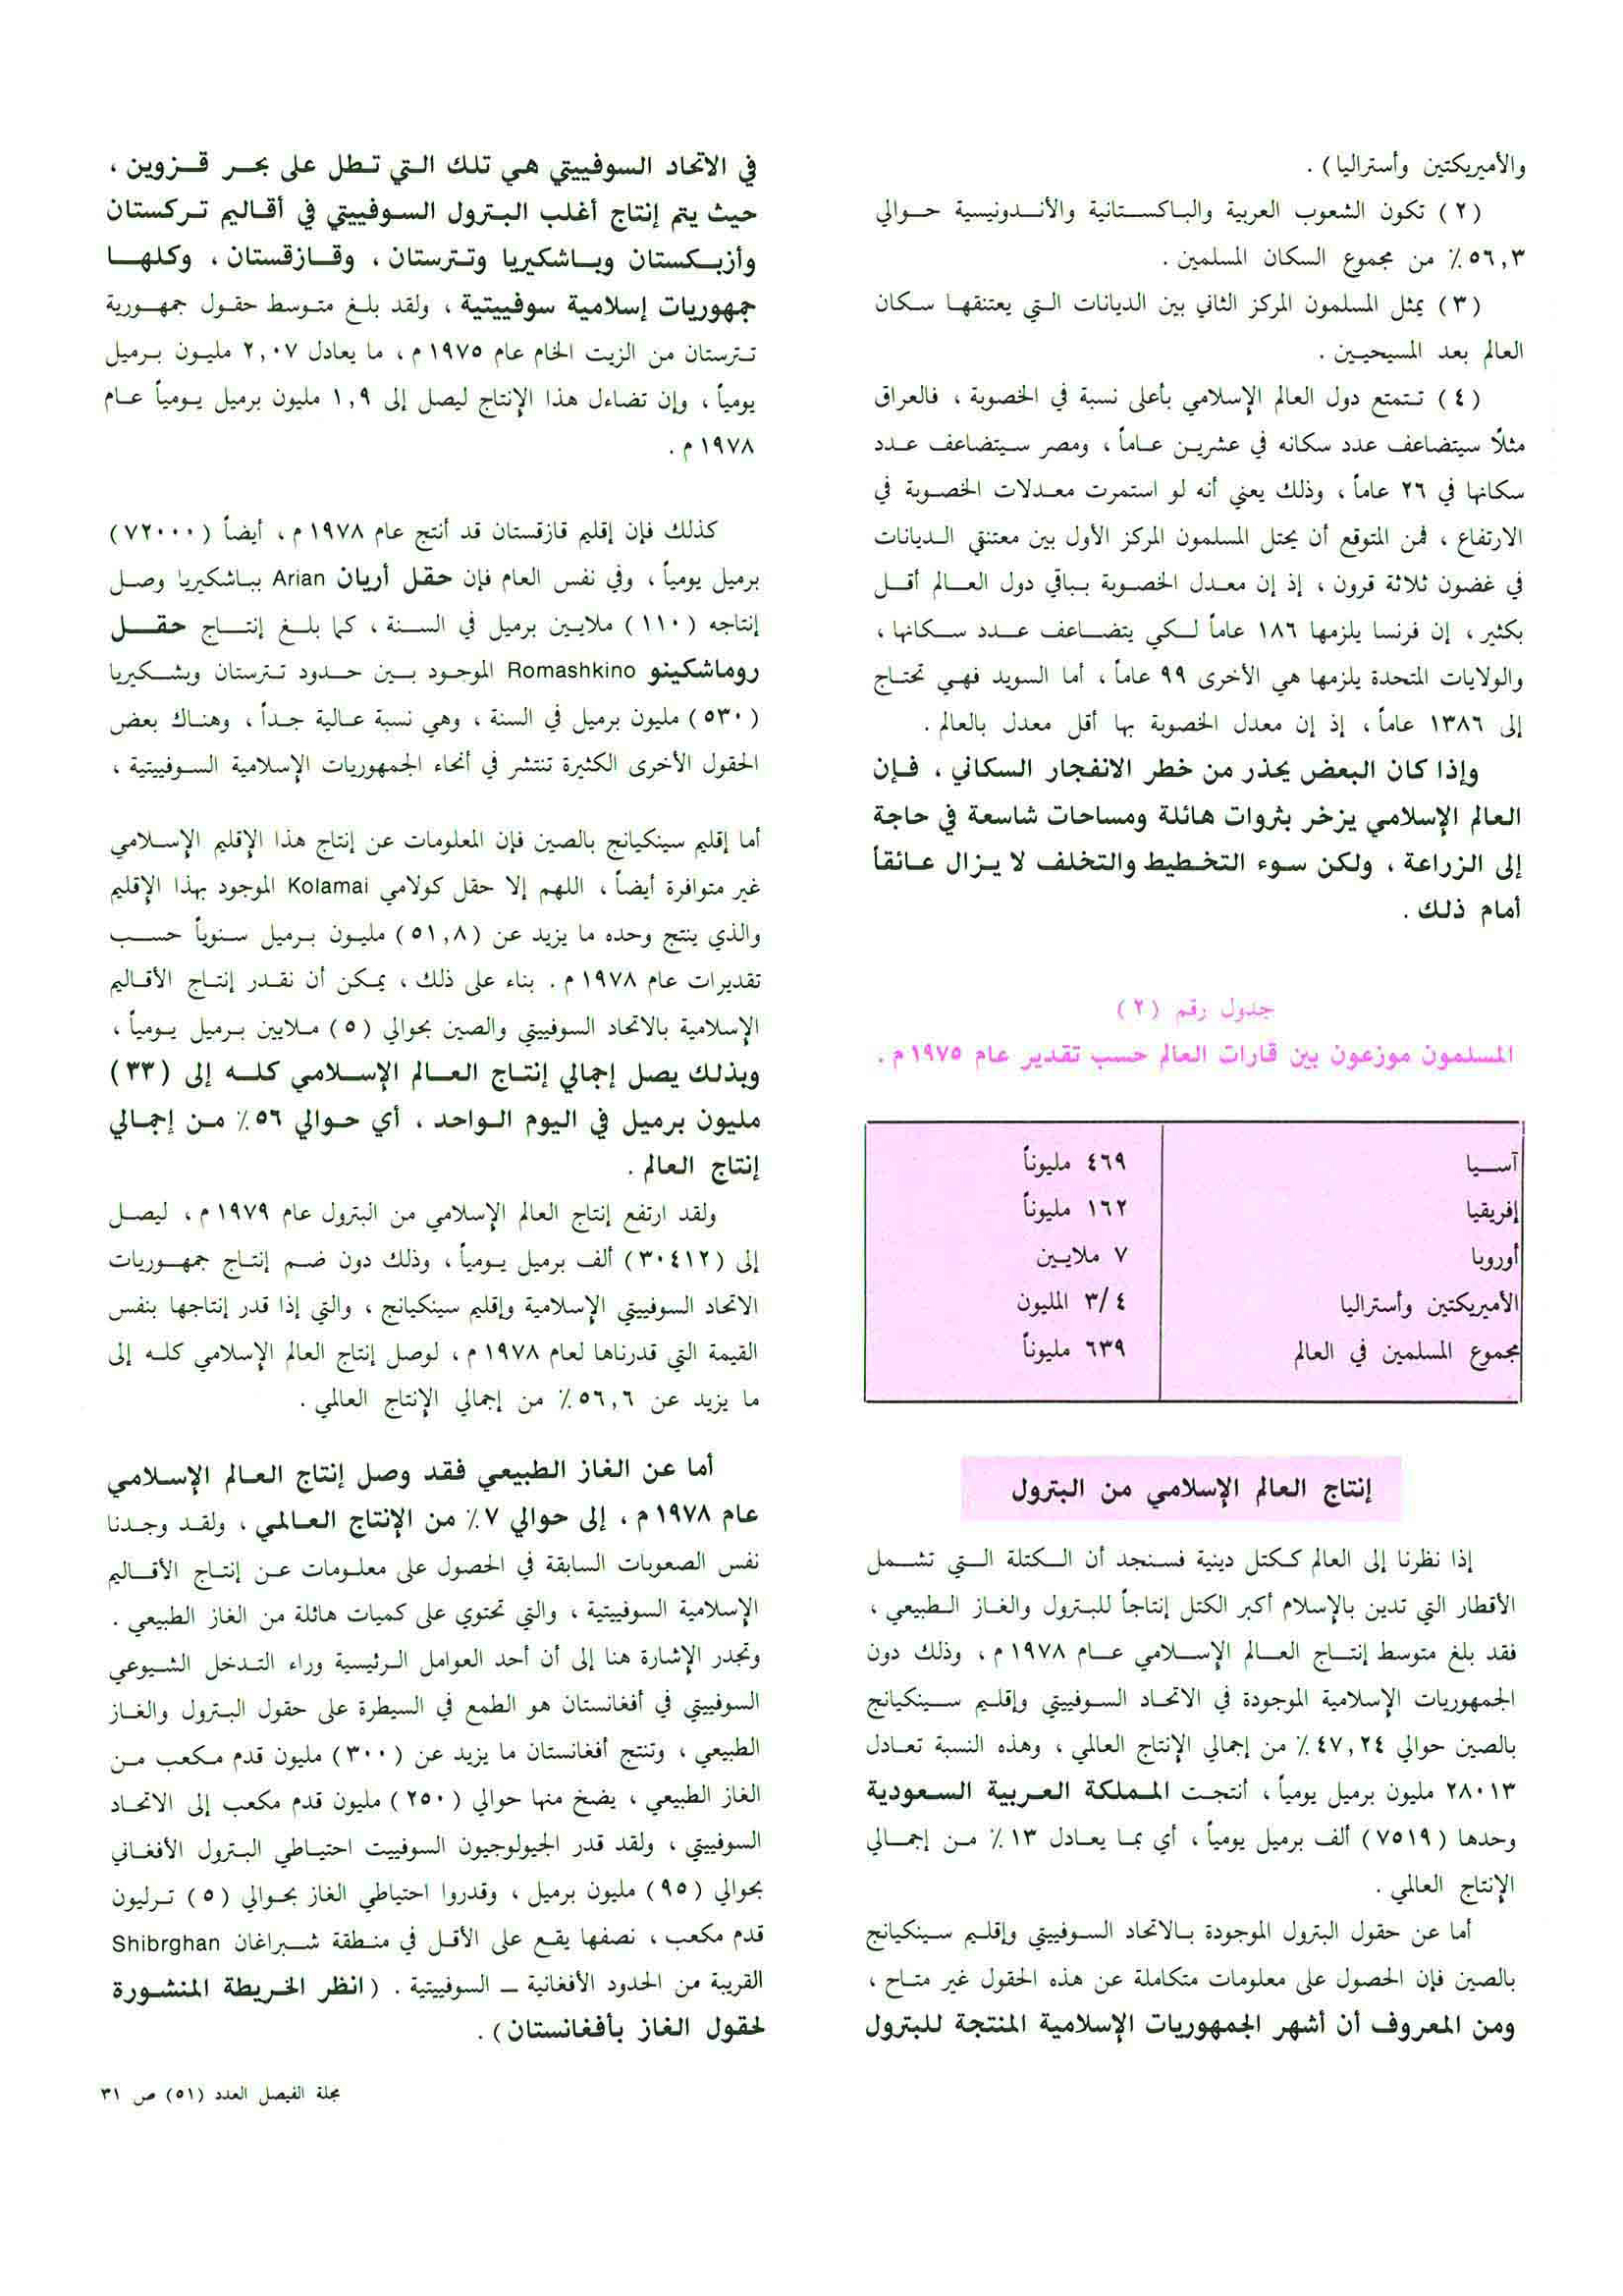 والأميريكتين وأستراليا) .
(٢) تكون الشعوب العربية والباكستانية والأندونيسية حوالي
٥٦,٣ ٪ من مجموع السكان المسلمين .
(٣) يمثل المسلمون المركز الثاني بين الديانات التي يعتنقها سكان
العالم بعد المسيحيين .
(٤) تتمتع دول العالم الإسلامي بأعلى نسبة في الخصوبة ، فالعراق
مثلًا سيتضاعف عدد سكانه في عشرين عاماً ، ومصر سيتضاعف عدد
سكانها في ٢٦ عاماً ، وذلك يعني أنه لو استمرت معدلات الخصوبة في
الارتفاع ، فمن المتوقع أن يحتل المسلمون المركز الأول بين معتنقي الديانات
في غضون ثلاثة قرون ، إذ إن معدل الخصوبة بباقي دول العالم أقل
بكثير ، إن فرنسا يلزمها ١٨٦ عاماً لكي يتضاعف عدد سكانها ،
والولايات المتحدة يلزمها هي الأخرى ٩٩ عاماً ، أما السويد فهي تحتاج
إلى ١٣٨٦ عاماً ، إذ إن معدل الخصوبة بها أقل معدل بالعالم .
وإذا كان البعض يحذر من خطر الانفجار السكاني ، فإن
العالم الإسلامي يزخر بثروات هائلة ومساحات شاسعة في حاجة
إلى الزراعة ، ولكن سوء التخطيط والتخلف لا يزال عائقاً
أمام ذلك .
جدول رقم (٢)
المسلمون موزعون بين قارات العالم حسب تقدير عام ١٩٧٥ م .
آسيا ٤٦٩ مليوناً
إفريقيا ١٦٢ مليوناً
أوروبا ٧ ملايين
الأميريكتين وأستراليا ٣/٤ المليون
مجموع المسلمين في العالم ٦٣٩ مليوناً
إنتاج العالم الإسلامي من البترول
إذا نظرنا إلى العالم ككتل دينية فسنجد أن الكتلة التي تشمل
الأقطار التي تدين بالإسلام أكبر الكتل إنتاجاً للبترول والغاز الطبيعي ،
فقد بلغ متوسط إنتاج العالم الإسلامي عام ١٩٧٨ م ، وذلك دون
الجمهوريات الإسلامية الموجودة في الاتحاد السوفييتي وإقليم سينكيانج
بالصين حوالي ٤٧,٢٤ ٪ من إجمالي الإنتاج العالمي ، وهذه النسبة تعادل
٢٨٠١٣ مليون برميل يومياً ، أنتجت المملكة العربية السعودية
وحدها (٧٥١٩) ألف برميل يومياً ، أي بما يعادل ١٣ ٪ من إجمالي
الإنتاج العالمي .
أما عن حقول البترول الموجودة بالاتحاد السوفييتي وإقليم سينكيانج
بالصين فإن الحصول على معلومات متكاملة عن هذه الحقول غير متاح ،
ومن المعروف أن أشهر الجمهوريات الإسلامية المنتجة للبترول
في الاتحاد السوفييتي هي تلك التي تطل على بحر قزوين ،
حيث يتم إنتاج أغلب البترول السوفييتي في أقاليم تركستان
وأزبكستان وباشكيريا وتترستان ، وقازقستان ، وكلها
جمهوريات إسلامية سوفييتية ، ولقد بلغ متوسط حقول جمهورية
تترستان من الزيت الخام عام ١٩٧٥ م ، ما يعادل ٢,٠٧ مليون برميل
يومياً ، وإن تضاءل هذا الإنتاج ليصل إلى ١,٩ مليون برميل يومياً عام
١٩٧٨ م .
كذلك فإن إقليم قازقستان قد أنتج عام ١٩٧٨ م ، أيضاً (٧٢٠٠٠)
برميل يومياً ، وفي نفس العام فإن حقل أريان Arian بباشكيريا وصل
إنتاجه (١١٠) ملايين برميل في السنة ، كما بلغ إنتاج حقل
روماشكينو Romashkino الموجود بين حدود تترستان وبشكيريا
(٥٣٠) مليون برميل في السنة ، وهي نسبة عالية جداً ، وهناك بعض
الحقول الأخرى الكثيرة تنتشر في أنحاء الجمهوريات الإسلامية السوفييتية ،
أما إقليم سينكيانج بالصين فإن المعلومات عن إنتاج هذا الإقليم الإسلامي
غير متوافرة أيضاً ، اللهم إلا حقل كولامي Kolamai الموجود بهذا الإقليم
والذي ينتج وحده ما يزيد عن (٥١,٨) مليون برميل سنوياً حسب
تقديرات عام ١٩٧٨ م . بناء على ذلك ، يمكن أن نقدر إنتاج الأقاليم
الإسلامية بالاتحاد السوفييتي والصين بحوالي (٥) ملايين برميل يومياً ،
وبذلك يصل إجمالي إنتاج العالم الإسلامي كله إلى (٣٣)
مليون برميل في اليوم الواحد ، أي حوالي ٥٦ ٪ من إجمالي
إنتاج العالم .
ولقد ارتفع إنتاج العالم الإسلامي من البترول عام ١٩٧٩ م ، ليصل
إلى (٣٠٤١٢) ألف برميل يومياً ، وذلك دون ضم إنتاج جمهوريات
الاتحاد السوفييتي الإسلامية وإقليم سينكيانج ، والتي إذا قدر إنتاجها بنفس
القيمة التي قدرناها لعام ١٩٧٨ م ، لوصل إنتاج العالم الإسلامي كله إلى
ما يزيد عن ٥٦,٦ ٪ من إجمالي الإنتاج العالمي .
أما عن الغاز الطبيعي فقد وصل إنتاج العالم الإسلامي
عام ١٩٧٨ م ، إلى حوالي ٧ ٪ من الإنتاج العالمي ، ولقد وجدنا
نفس الصعوبات السابقة في الحصول على معلومات عن إنتاج الأقاليم
الإسلامية السوفييتية ، والتي تحتوي على كميات هائلة من الغاز الطبيعي .
وتجدر الإشارة هنا إلى أن أحد العوامل الرئيسية وراء التدخل الشيوعي
السوفييتي في أفغانستان هو الطمع في السيطرة على حقول البترول والغاز
الطبيعي ، وتنتج أفغانستان ما يزيد عن (٣٠٠) مليون قدم مكعب من
الغاز الطبيعي ، يضخ منها حوالي (٢٥٠) مليون قدم مكعب إلى الاتحاد
السوفييتي ، ولقد قدر الجيولوجيون السوفييت احتياطي البترول الأفغاني
بحوالي (٩٥) مليون برميل ، وقدروا احتياطي الغاز بحوالي (٥) ترليون
قدم مكعب ، نصفها يقع على الأقل في منطقة شبراغان Shibrghan
القريبة من الحدود الأفغانية – السوفييتية . (انظر الخريطة المنشورة
لحقول الغاز بأفغانستان) .
مجلة الفيصل العدد (٥١) ص ٣١